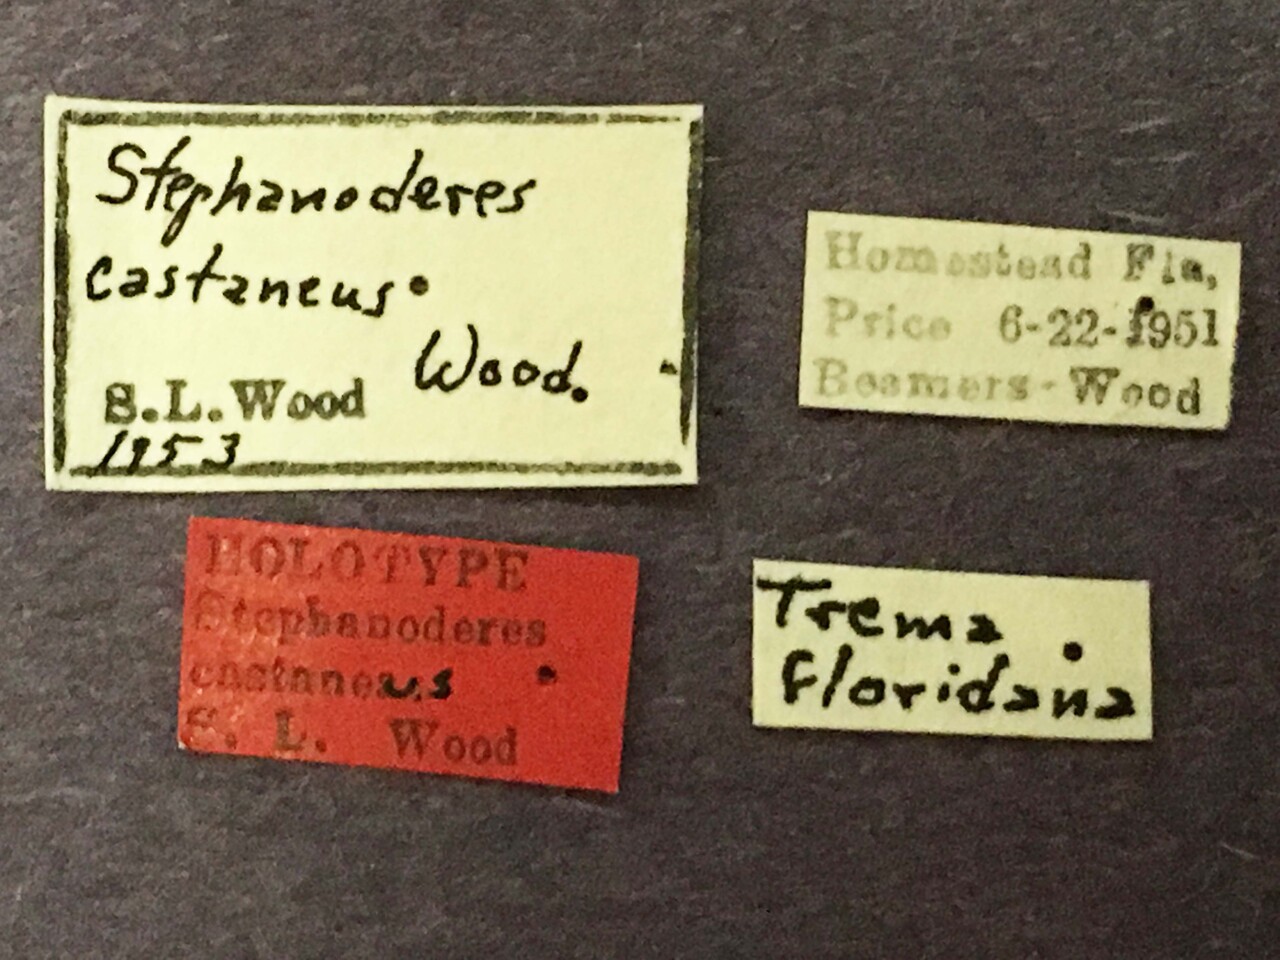 Stephanoderes
castaneus
Wood.
S.L. Wood
1953
Homestead Fla,
Price 6-22-1951
Beamers-Wood
HOLOTYPE
Stephanoderes
castaneus
S. L. Wood
Trema
floridana